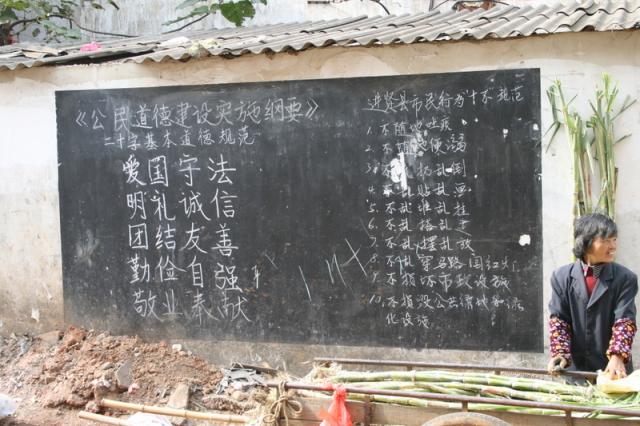 《公民道德建设实施纲要》
二十字基本道德规范
爱国守法
明礼诚信
团结友善
勤俭自强
敬业奉献
进贤县市民行为"十不"规范
1. 不随地吐痰
2. 不随 便溺
3. 不乱扔乱倒
4. 不乱贴乱画
5. 不乱堆乱挂
6. 不乱搭乱
7. 不乱摆乱放
8. 不乱穿马路闯红灯
9. 不损坏市政设施
10. 不损毁公共绿地和绿
化设施